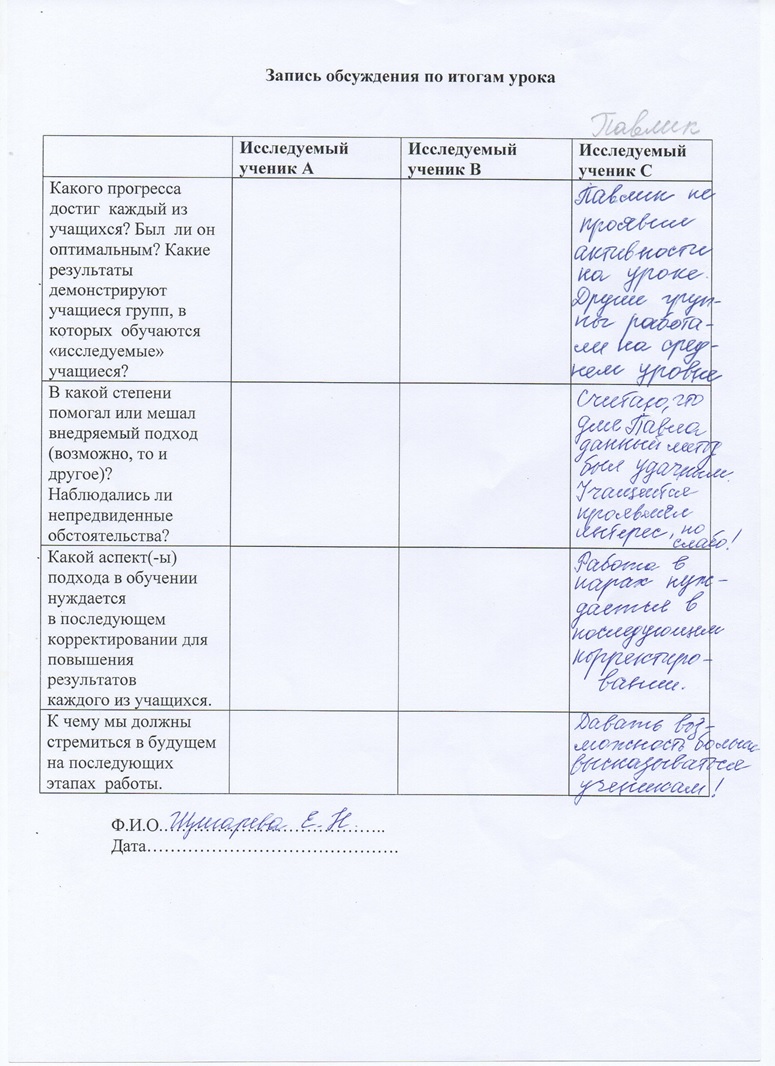 Запись обсуждения по итогам урока
Павлик
Исследуемый
ученик А
Исследуемый
ученик В
Исследуемый
ученик С
Какого прогресса
достиг каждый из
учащихся? Был ли он
оптимальным? Какие
результаты
демонстрируют
учащиеся групп, в
которых обучаются
«исследуемые»
учащиеся?
Павлик не
проявил
активности
на уроке.
Другие груп-
пы работа-
ли на сред-
нем уровне
В какой степени
помогал или мешал
внедряемый подход
(возможно, то и
другое)?
Наблюдались ли
непредвиденные
обстоятельства?
Считаю, что
для Павла
данный метод
был удачным.
Учащийся
проявлял
интерес, но
слабо!
Какой аспект(-ы)
подхода в обучении
нуждается
в последующем
корректировании для
повышения
результатов
каждого из учащихся.
Работа в
парах нуж-
дается в
последующем
корректиро-
вании.
К чему мы должны
стремиться в будущем
на последующих
этапах работы.
Давать воз-
можность больше
высказываться
ученикам!
Ф.И.О. Е. Н.
Дата